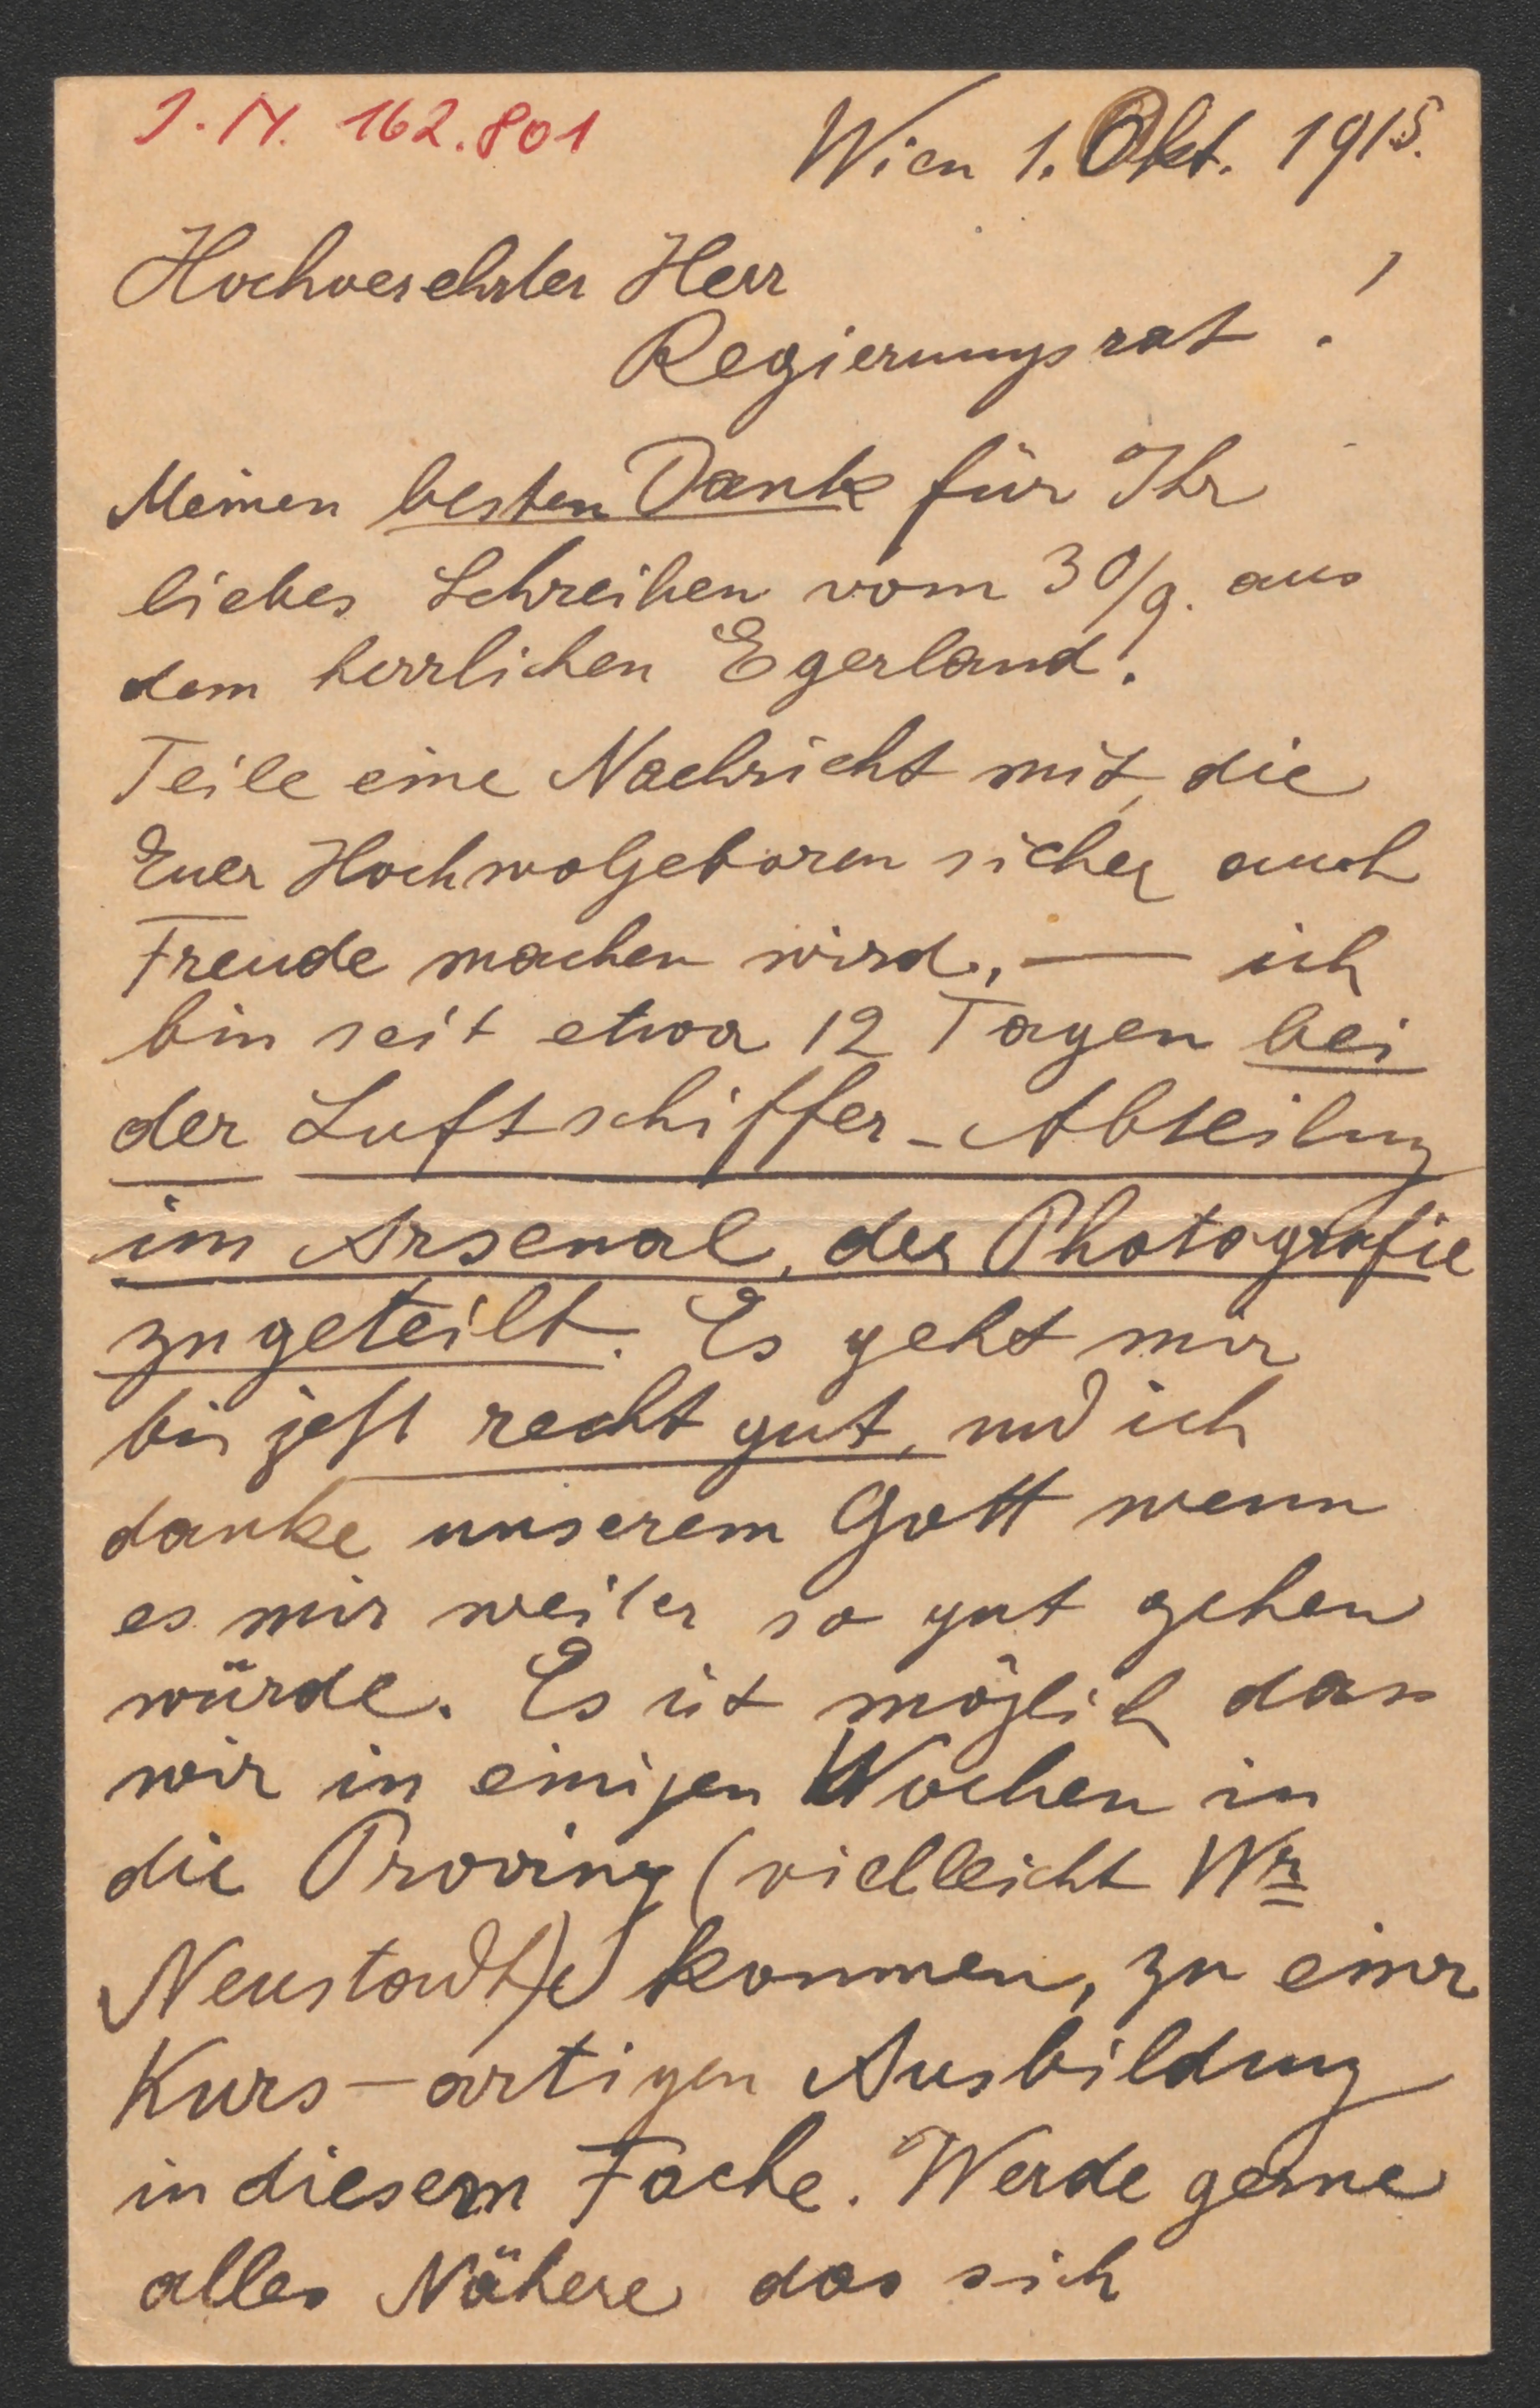 J. N. 162.801
Wien 1. Okt. 1915.
Hochverehrter Herr
Regierungsrat !
Meinen besten Dank für Ihr
liebes Schreiben vom 30/9. aus
dem herrlichen Egerland!
Teile eine Nachricht mit, die
Euer Hochwolgeboren sicher auch
Freude machen wird, — ich
bin seit etwa 12 Tagen bei
der Luftschiffer-Abteilung
im Arsenal, der Photografie
zugeteilt. Es geht mir
bis jetzt recht gut, und ich
danke unserem Gott wenn
es mir weiter so gut gehen
würde. Es ist möglich dass
wir in einigen Wochen in
die Provinz (vielleicht Wr
Neustadt) kommen, zu einer
Kurs-artigen Ausbildung
in diesem Fache. Werde gerne
alles Nähere das sich